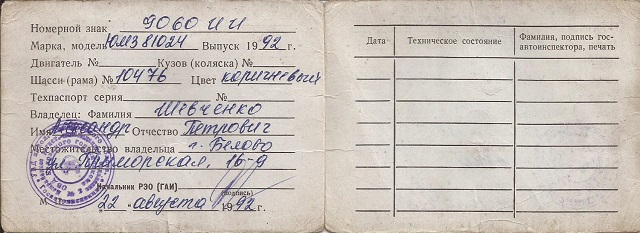 Номерной знак 9060 ИИ
Марка, модель ЮМЗ 81024 Выпуск 1992 г.
Двигатель № Кузов (коляска) №
Шасси (рама) № 10476 Цвет коричневый
Техпаспорт серия №
Владелец: Фамилия Шевченко
Имя Александр Отчество Петрович
Местожительство владельца г. Белово
ул. Приморская, 16-9
Начальник РЭО (ГАИ)
(подпись)
М 22 " августа 1992 г.
Дата Техническое состояние Фамилия, подпись гос-
автоинспектора, печать